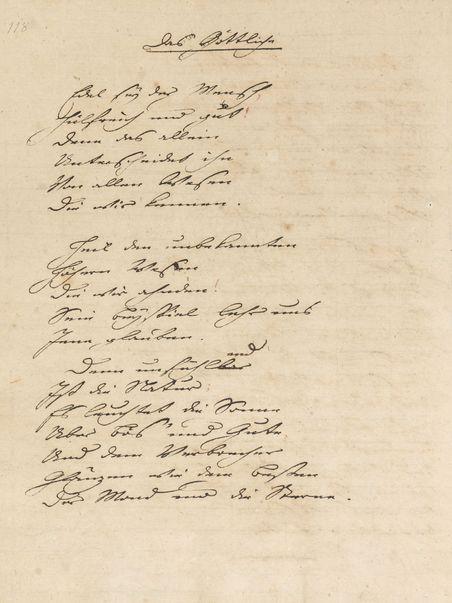 118
Das Göttliche
Edel sey der Mensch
Hülfreich und gut
Denn das allein
Unterscheidet ihn
Von allen Wesen
Die wir kennen.
Heil den unbekannten
Höhern Wesen
Die wir ahnden!
Sein Beyspiel lehr uns
Jene glauben.
Denn unfühlend
Ist die Natur:
Es leuchtet die Sonne
Über Bös' und Gute
Und dem Verbrecher
Glänzen wie dem Besten
Der Mond und die Sterne.